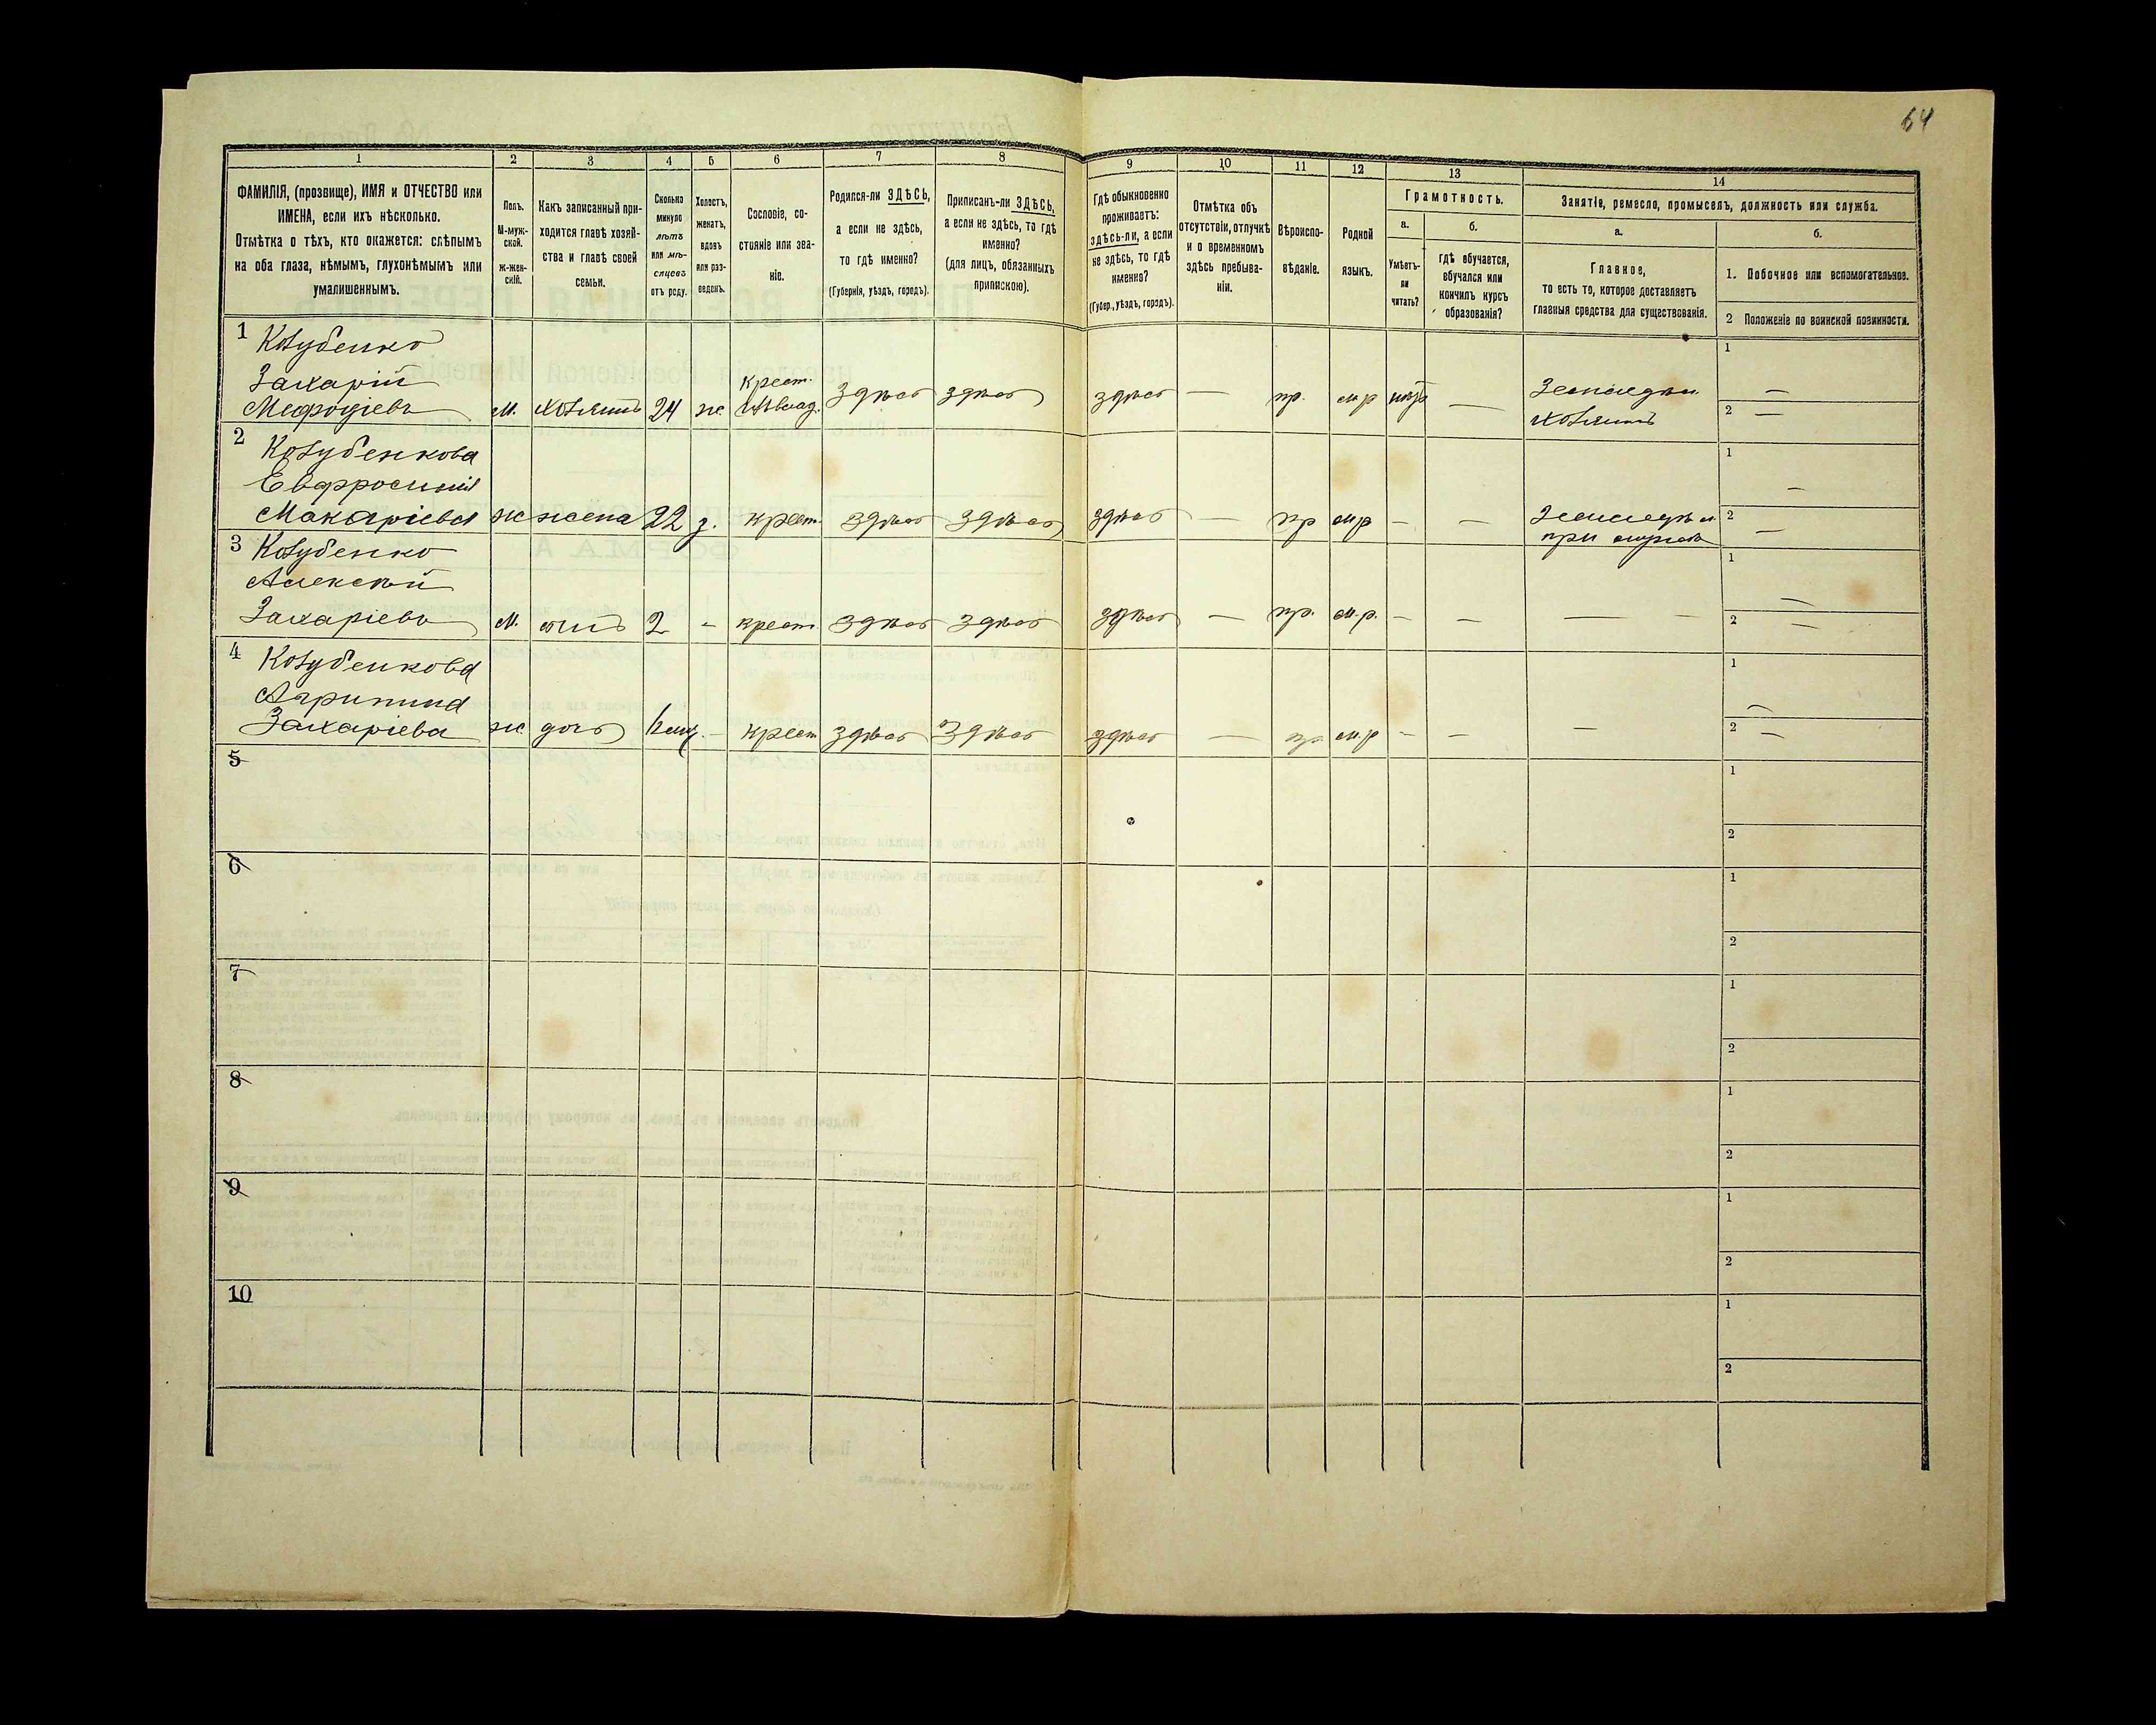 64
1 2 3 4 5 6 7 8 9 10 11 12 13 14
ФАМИЛІЯ, (прозвище), ИМЯ и ОТЧЕСТВО или
ИМЕНА, если ихъ нѣсколько.
Отмѣтка о тѣхъ, кто окажется: слѣпымъ
на оба глаза, нѣмымъ, глухонѣмымъ или
умалишеннымъ.
Полъ.
М-муж-
ской.
ж-жен-
скій.
Какъ записанный при-
ходится главѣ хозяй-
ства и главѣ своей
семьи.
Сколько
минуло
лѣтъ
или мѣ-
сяцевъ
отъ роду.
Холостъ,
женатъ,
вдовъ
или раз-
веденъ.
Сословіе, со-
стояніе или зва-
ніе.
Родился-ли ЗДѢСЬ,
а если не здѣсь,
то гдѣ именно?
(Губернія, уѣздъ, городъ).
Приписанъ-ли ЗДѢСЬ,
а если не здѣсь, то гдѣ
именно?
(для лицъ, обязанныхъ
припискою).
Гдѣ обыкновенно
проживаетъ:
здѣсь-ли, а если
не здѣсь, то гдѣ
именно?
(Губер., уѣздъ, городъ).
Отмѣтка объ
отсутствіи, отлучкѣ
и о временномъ
здѣсь пребыва-
ніи.
Вѣроиспо-
вѣданіе.
Родной
языкъ.
Грамотность.
а.
Умѣетъ-
ли
читать?
б.
гдѣ обучается,
обучался или
кончилъ курсъ
образованія?
Занятія, ремесло, промыселъ, должность или служба.
а.
Главное,
то есть то, которое доставляетъ
главныя средства для существованія.
б.
1. Побочное или вспомогательное.
2 Положеніе по воинской повинности.
1 Козубенко
Захарій
Мефодіевъ м. хозяинъ 24 ж. крест. здѣсь здѣсь здѣсь — пр. м.р нѣтъ —
хозяинъ
1 —
2 —
2 Козубенкова
Евфросинія
Макаріева ж жена 22 з. крест. здѣсь здѣсь здѣсь — пр м.р — —
при мужѣ
1 —
2 —
3 Козубенко
Алексѣй
Захаріевъ м. сынъ 2 - крест здѣсь здѣсь здѣсь — пр. м.р. — — — —
1 —
2 —
4 Козубенкова
Агрипина
Захаріева ж дочь — крест здѣсь здѣсь здѣсь — пр м.р — — —
1 —
2 —
5 1
2
6 1
2
7 1
2
8 1
2
9 1
2
10 1
2